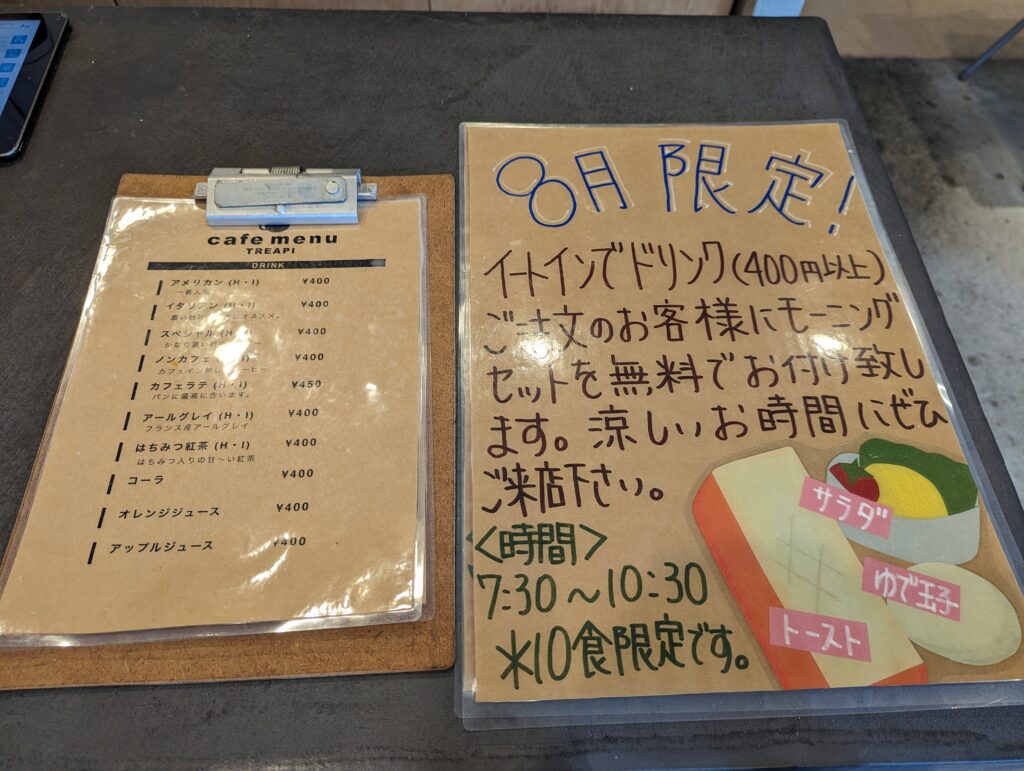 cafe menu
TREAPI
DRINK
アメリカン (H・I) ¥400
一番人気
イタリアン (H・I) ¥400
スペシャル (H・I) ¥400
かなり濃い
ノンカフェ ¥400
カフェイン
カフェラテ (H・I) ¥450
パンに最高に合います。
アールグレイ (H・I) ¥400
フランス産アールグレイ
はちみつ紅茶 (H・I) ¥400
はちみつ入りの甘〜い紅茶
コーラ ¥400
オレンジジュース ¥400
アップルジュース ¥400
8月限定!
イートインでドリンク(400円以上)
ご注文のお客様にモーニング
セットを無料でお付け致し
ます。涼しいお時間にぜひ
ご来店下さい。
<時間>
7:30〜10:30
※10食限定です。
サラダ
ゆで玉子
トースト